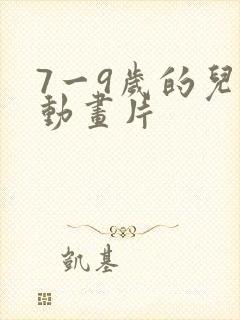 7一9歲的兒
動畫片
凱基